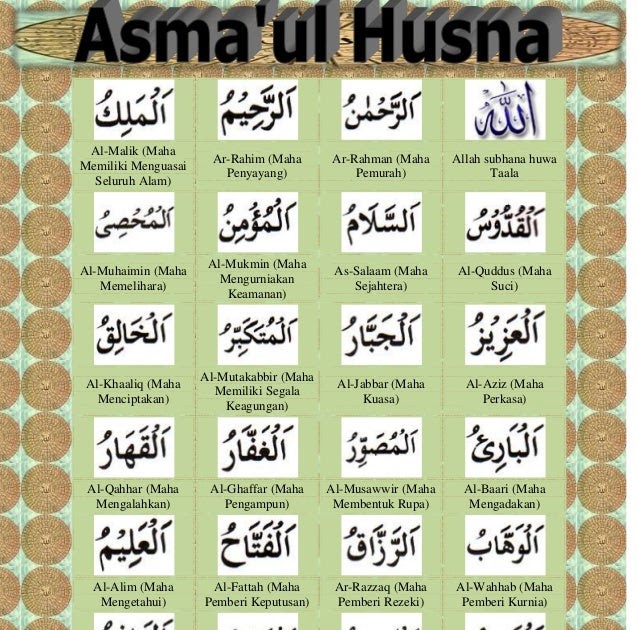 Asma'ul Husna
اللّٰه
Allah subhana huwa
Taala
اَلرَّحْمٰنُ
Ar-Rahman (Maha
Pemurah)
اَلرَّحِيْمُ
Ar-Rahim (Maha
Penyayang)
اَلْمَلِكُ
Al-Malik (Maha
Memiliki Menguasai
Seluruh Alam)
اَلْقُدُّوْسُ
Al-Quddus (Maha
Suci)
اَلسَّلَامُ
As-Salaam (Maha
Sejahtera)
اَلْمُؤْمِنُ
Al-Mukmin (Maha
Mengurniakan
Keamanan)
اَلْمُحْصِىُ
Al-Muhaimin (Maha
Memelihara)
اَلْعَزِيْزُ
Al-Aziz (Maha
Perkasa)
اَلْجَبَّارُ
Al-Jabbar (Maha
Kuasa)
اَلْمُتَكَبِّرُ
Al-Mutakabbir (Maha
Memiliki Segala
Keagungan)
اَلْخَالِقُ
Al-Khaaliq (Maha
Menciptakan)
اَلْبَارِئُ
Al-Baari (Maha
Mengadakan)
اَلْمُصَوِّرُ
Al-Musawwir (Maha
Membentuk Rupa)
اَلْغَفَّارُ
Al-Ghaffar (Maha
Pengampun)
اَلْقَهَارُ
Al-Qahhar (Maha
Mengalahkan)
اَلْوَهَّابُ
Al-Wahhab (Maha
Pemberi Kurnia)
اَلرَّزَّاقُ
Ar-Razzaq (Maha
Pemberi Rezeki)
اَلْفَتَّاحُ
Al-Fattah (Maha
Pemberi Keputusan)
اَلْعَلِيْمُ
Al-Alim (Maha
Mengetahui)